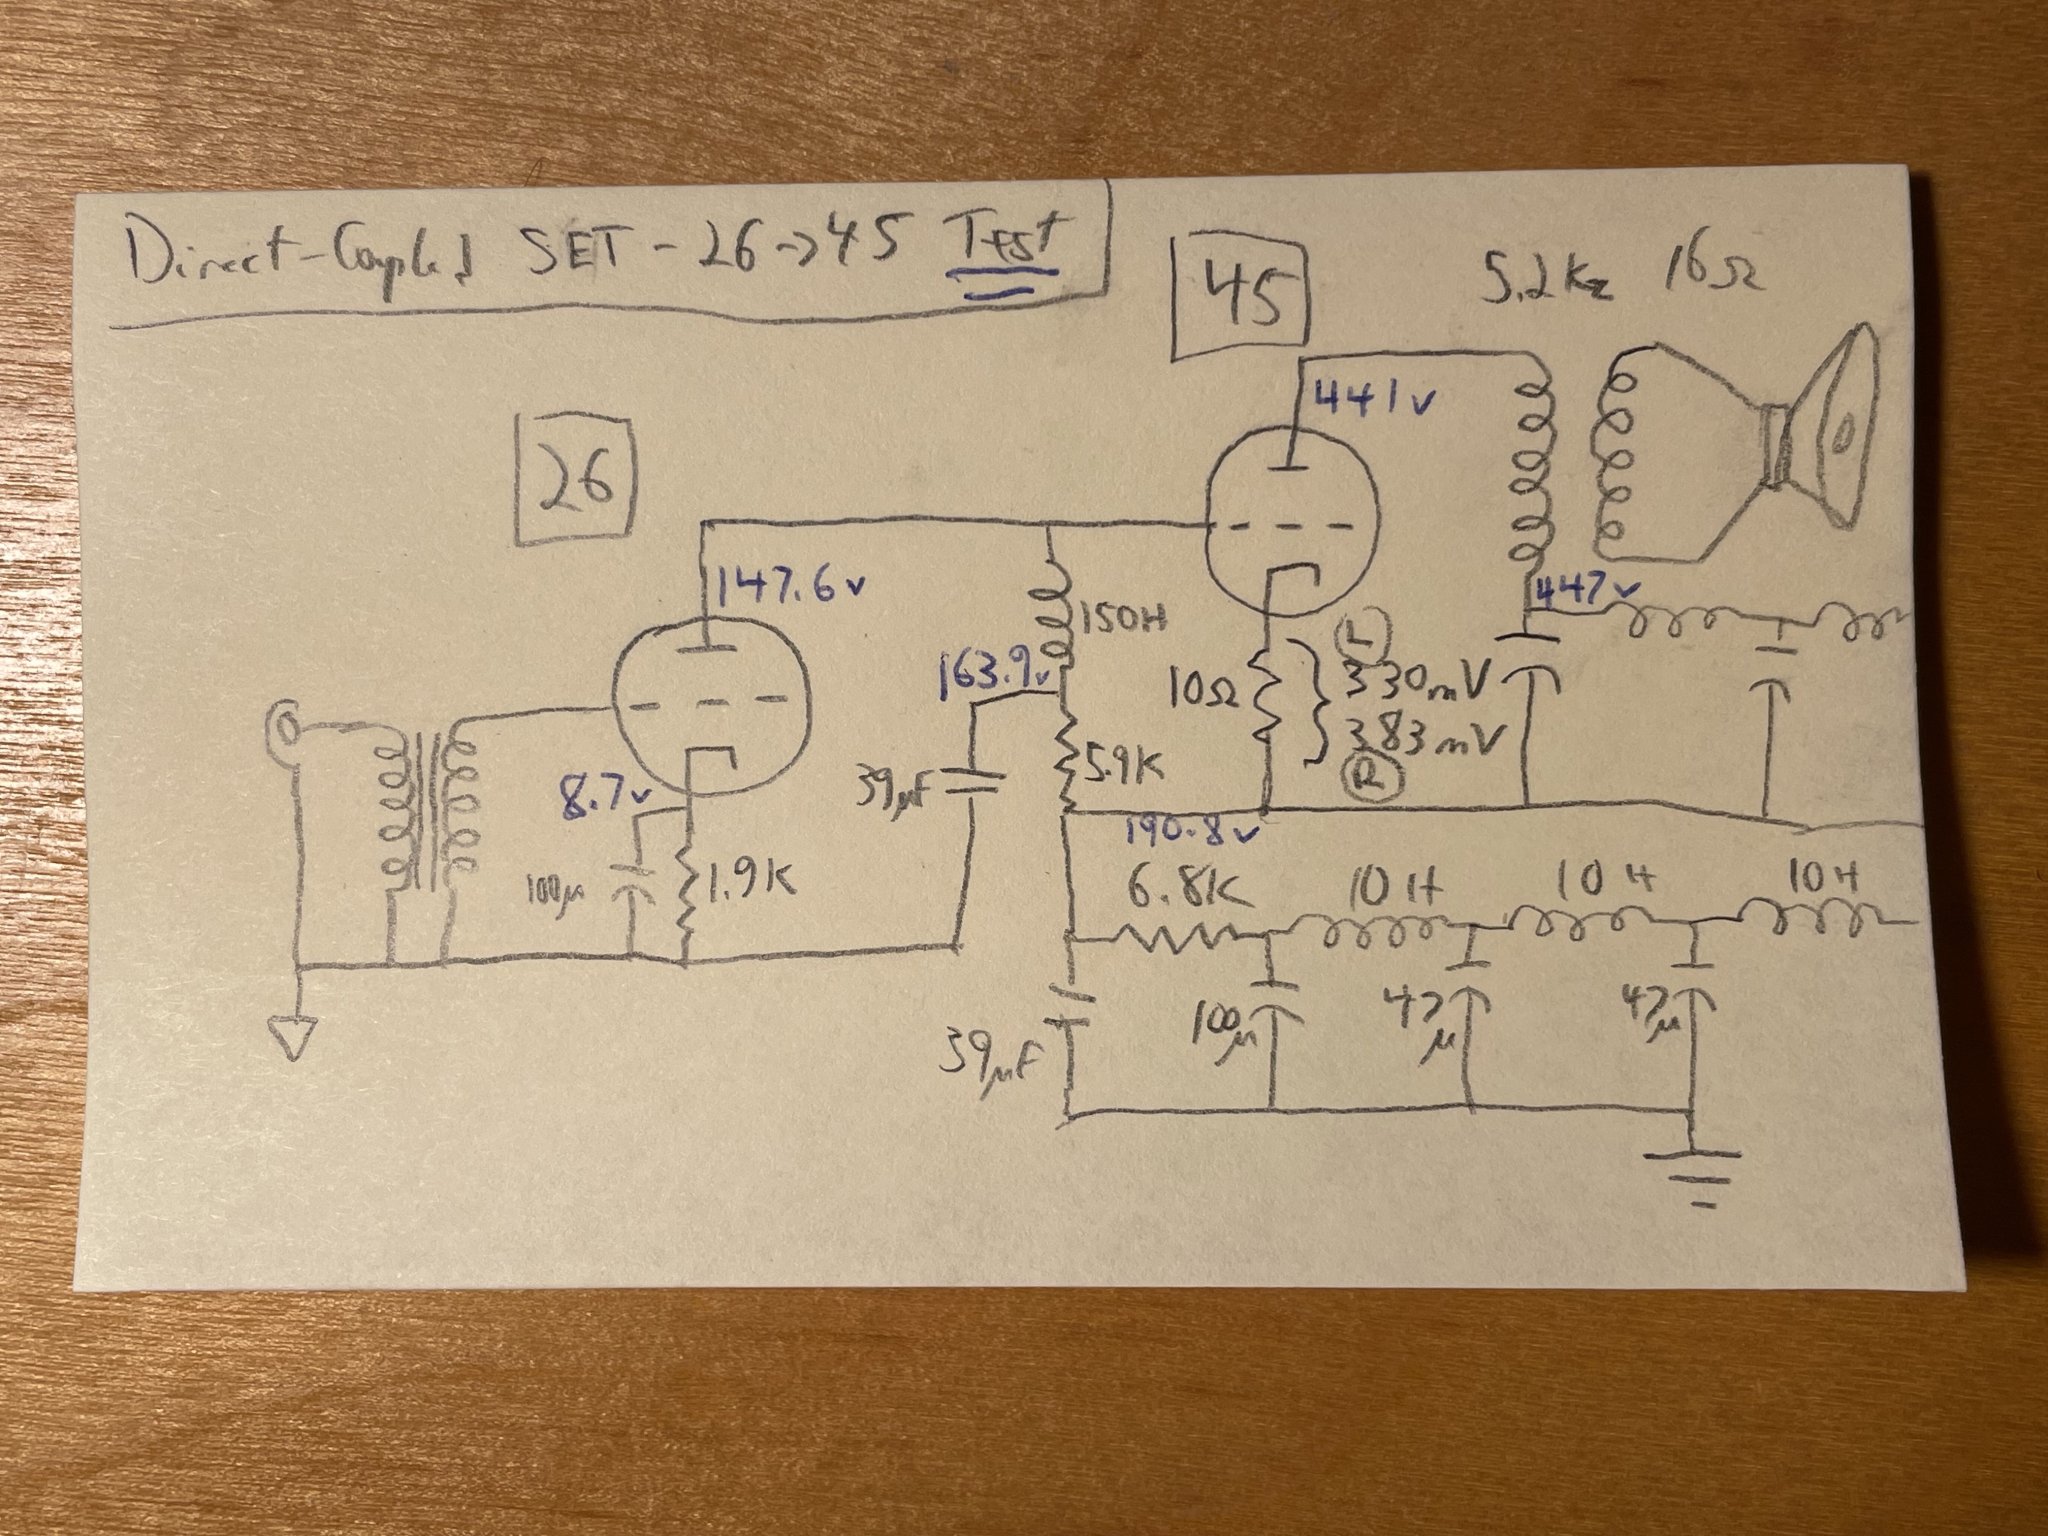 Direct-Coupled SET - 26→45 Test
45
5.2K 16Ω
26
441v
147.6v
447v
150H
163.9v
10Ω
L
330mV
383mV
R
5.9K
39µF
8.7v
190.8v
100µ
1.9K
6.8K
10H
10H
10H
39µF
100µ
47µ
47µ